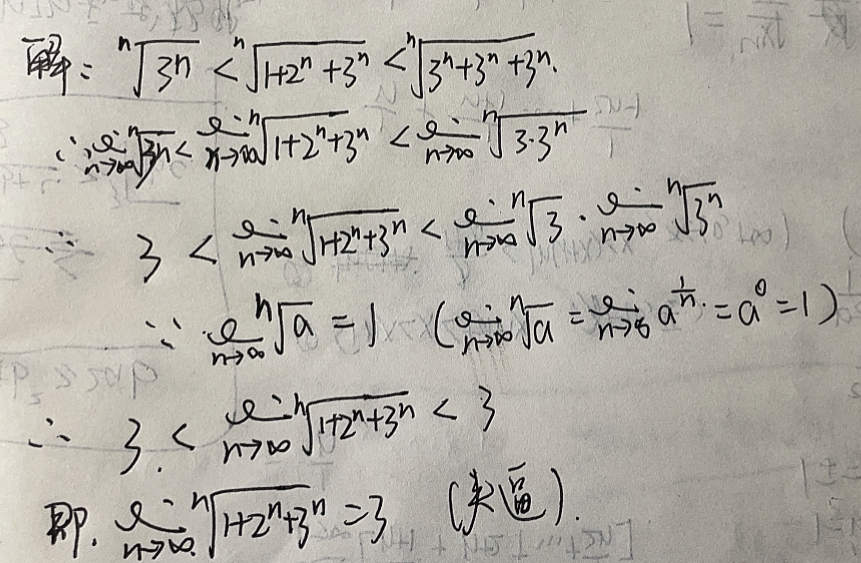 解: ⁿ√3ⁿ < ⁿ√1+2ⁿ+3ⁿ < ⁿ√3ⁿ+3ⁿ+3ⁿ.
∴ lim n→∞ ⁿ√3ⁿ < lim n→∞ ⁿ√1+2ⁿ+3ⁿ < lim n→∞ ⁿ√3·3ⁿ
∴ 3 < lim n→∞ ⁿ√1+2ⁿ+3ⁿ < lim n→∞ ⁿ√3 · lim n→∞ ⁿ√3ⁿ
∵ lim n→∞ ⁿ√a = 1 (lim n→∞ ⁿ√a = lim n→∞ a^(1/n) = a⁰ = 1)
∴ 3 < lim n→∞ ⁿ√1+2ⁿ+3ⁿ < 3
即. lim n→∞ ⁿ√1+2ⁿ+3ⁿ = 3 (夹逼).